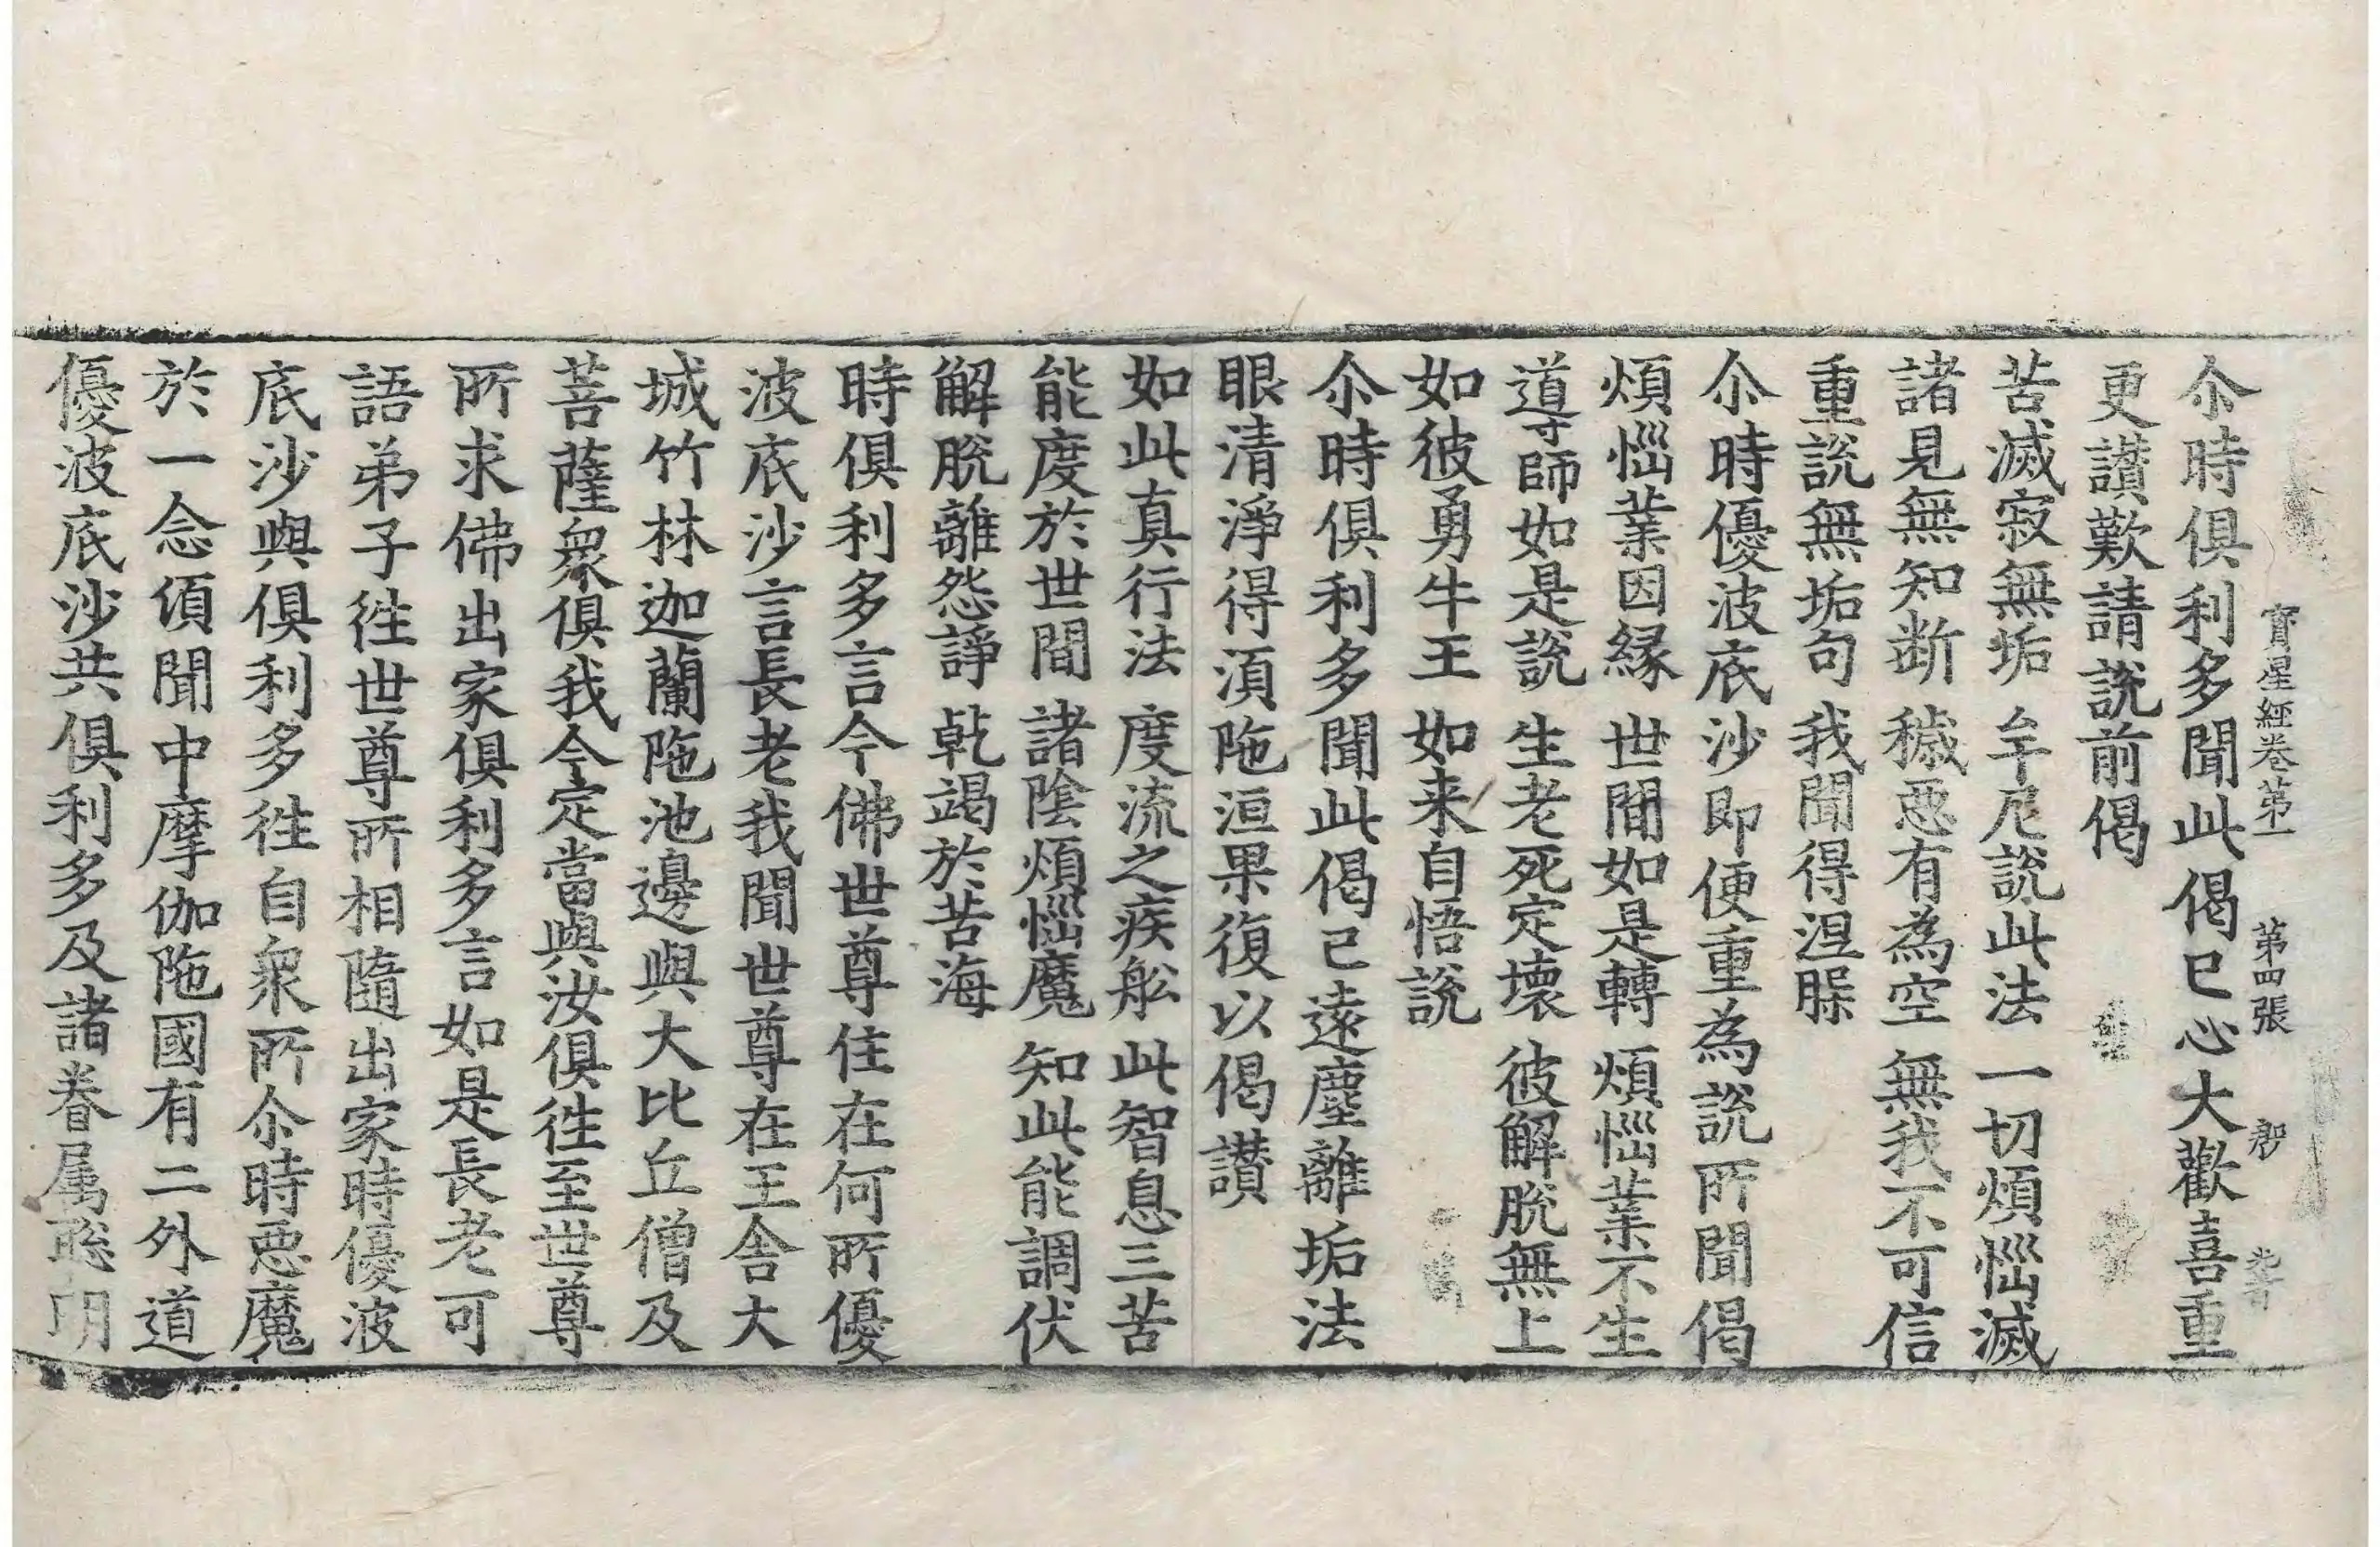 寶星經卷第一　第四張
尒時俱利多聞此偈已心大歡喜重
更讃歎請說前偈
苦滅寂無垢　牟尼說此法　一切煩惱滅
諸見無知断　穢惡有為空　無我不可信
重說無垢句　我聞得涅槃
尒時優波底沙即便重為說所聞偈
煩惱業因緣　世間如是轉　煩惱業不生
導師如是說　生老死定壞　彼解脫無上
如彼勇牛王　如来自悟說
尒時俱利多聞此偈已遠塵離垢法
眼清淨得湏陁洹果復以偈讃
如此真行法　度流之疾舩　此智息三苦
能度於世間　諸陰煩惱魔　知此能調伏
解脫離怨諍　乾竭於苦海
時俱利多言今佛世尊住在何所優
波底沙言長老我聞世尊在王舍大
城竹林迦蘭陁池邊與大比丘僧及
菩薩衆俱我今定當與汝俱徃至世尊
所求佛出家俱利多言如是長老可
語弟子徃世尊所相隨出家時優波
底沙與俱利多徃自衆所尒時惡魔
於一念頃聞中摩伽陁國有二外道
優波底沙共俱利多及諸眷属聡明